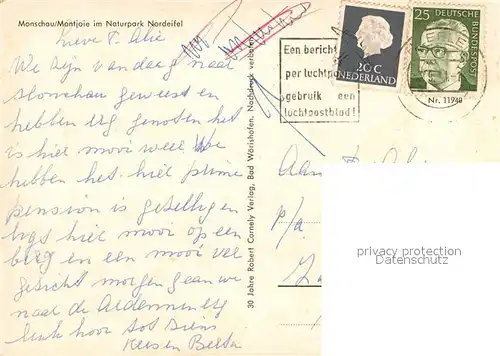 Monschau/Montjoie im Naturpark Nordeifel
Lieve T. Alie
We zijn vandaag naat
Monschau geweest en
hebben erg genoten het
is hier mooi weer We
hebben het hier prima
pension is gezellig en
hier mooi op een
berg en een mooi ver
gezicht morgen gaan we
naar de Ardennen erg
leuk hoor tot ziens
Berta
30 Jahre Robert Cornely Verlag, Bad Wörishofen, Nachdruck verboten
Een bericht
per luchtpost
gebruik een
luchtpostblad!
20c
NEDERLAND
25
DEUTSCHE
BUNDESPOST
Nr. 11940
Aan
p/a
privacy protection
watermark